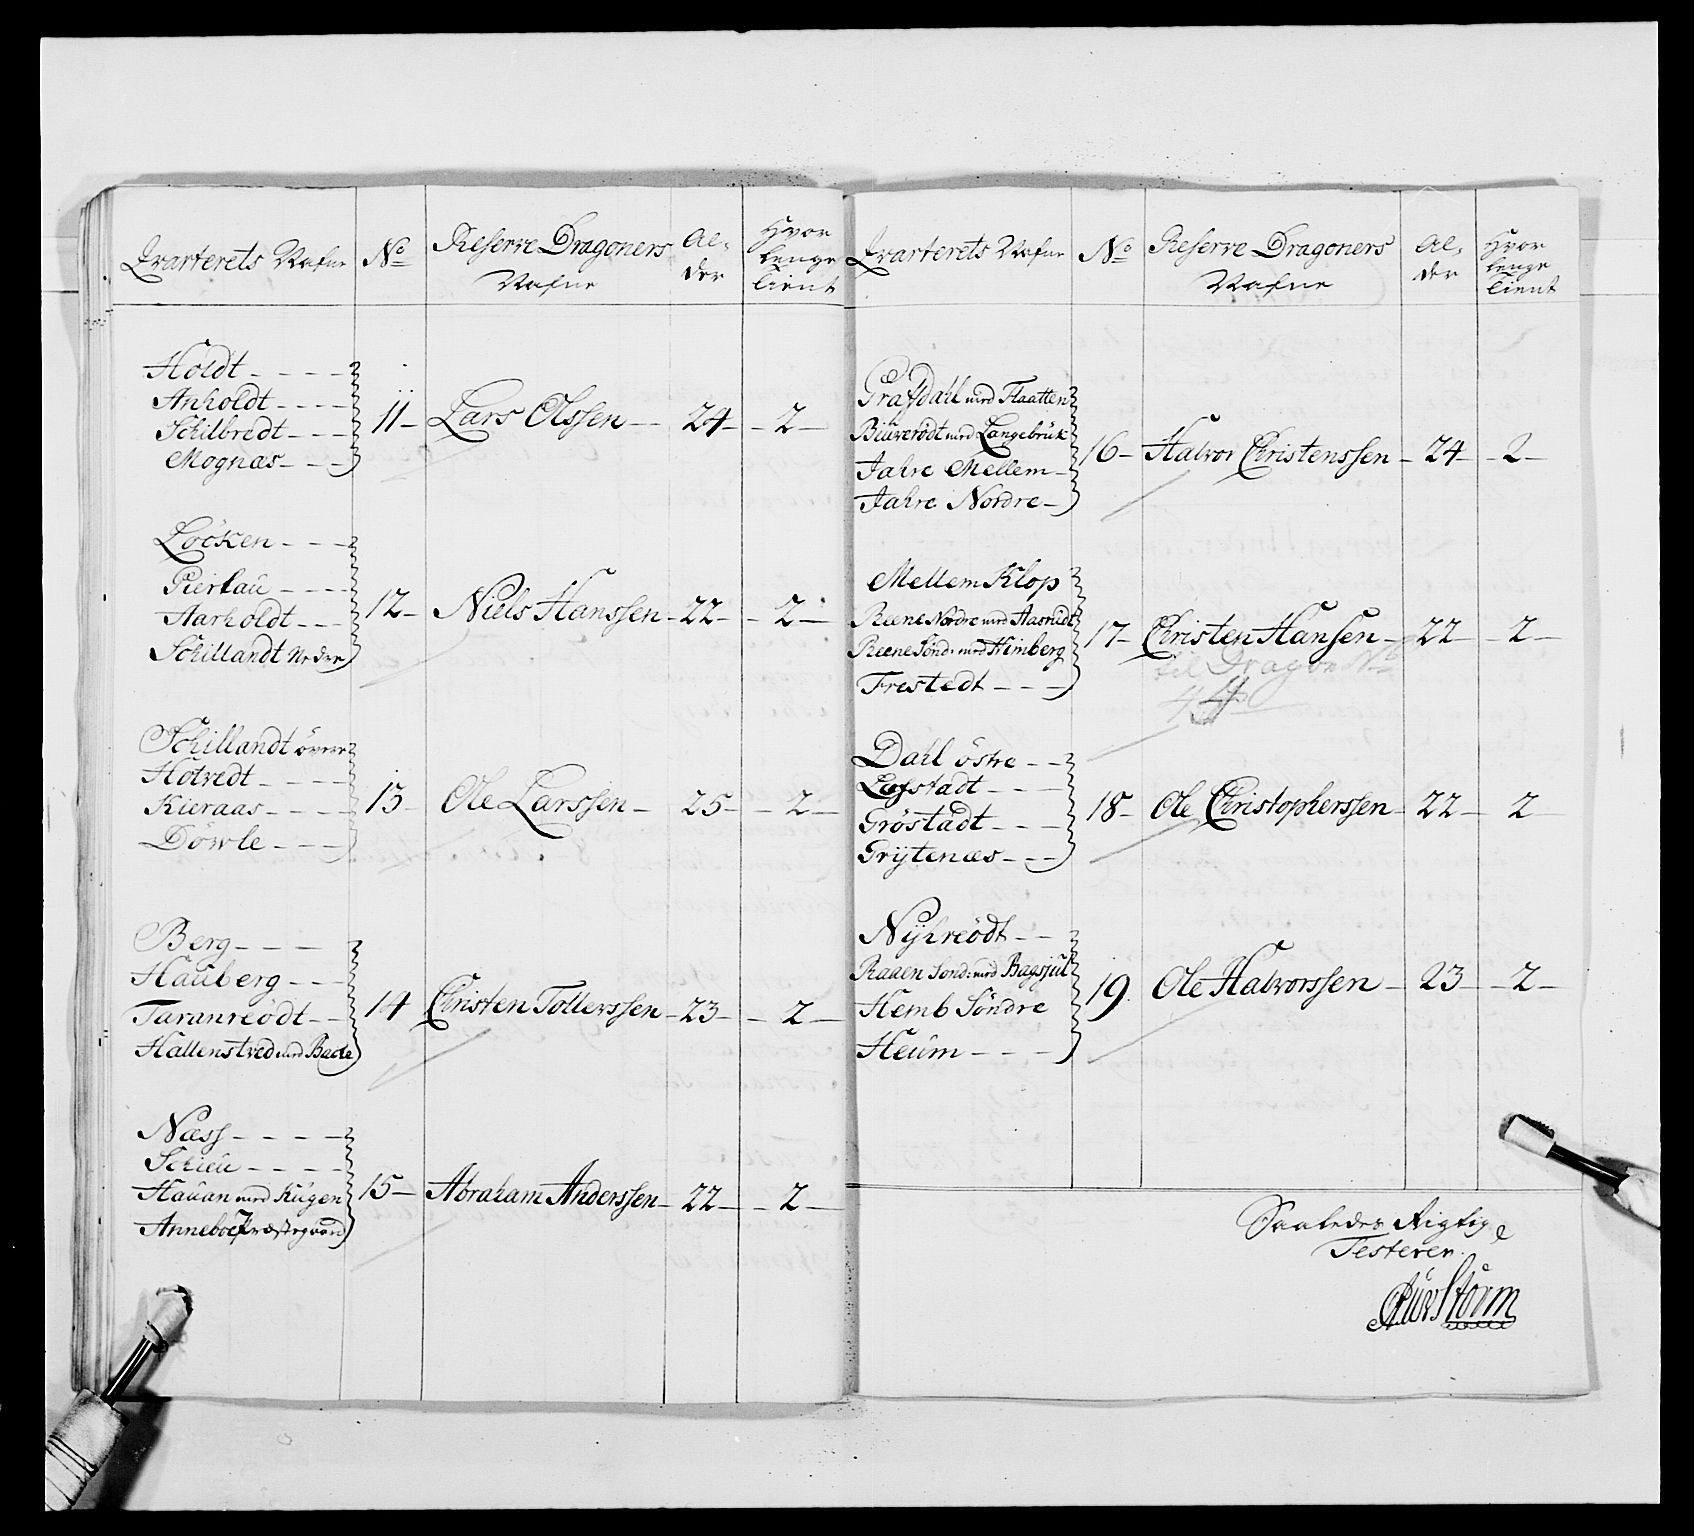 Qvarterets Nafne
No
Reserve Dragoners
Nafne
Al-
der
Hvor
lenge
tient
Holdt
Anholdt
Schilbredt
Mognæs
11 Lars Olssen 24 2
Löcken
Pierlau
Aarholdt
Schillandt Nedre
12 Niels Hanssen 22 2
Schillandt övere
Hotvedt
Kieraas
Döwle
13 Ole Larssen 25 2
Berg
Hauberg
Taranreödt
Hallenstved med Bade
14 Christen Tollerssen 23 2
Næss
Schieu
Hauan med Kugen
Anneboe Præstegaard
15 Abraham Anderssen 22 2
Qvarterets Nafne
No
Reserve Dragoners
Nafne
Al-
der
Hvor
lenge
tient
Grafdahl med Flaatten
Biuverödt med Langebruk
Jahre Mellem
Jahre Nordre
16 Halvor Christenssen 24 2
Mellem Klop
Reene Nordre med Aasrudt
Reene Sönd: med Himberg
Frestedt
17 Christen Hansen 22 2
til Dragon No
44
Dahl östre
Lofstadt
Gröstadt
Grytenæs
18 Ole Christopherssen 22 2
Nyhreödt
Raaen Sönd: med Bagsjul
Hemb Söndre
Heum
19 Ole Halvorssen 23 2
Saaledes Rigtig
Testerer
Storm